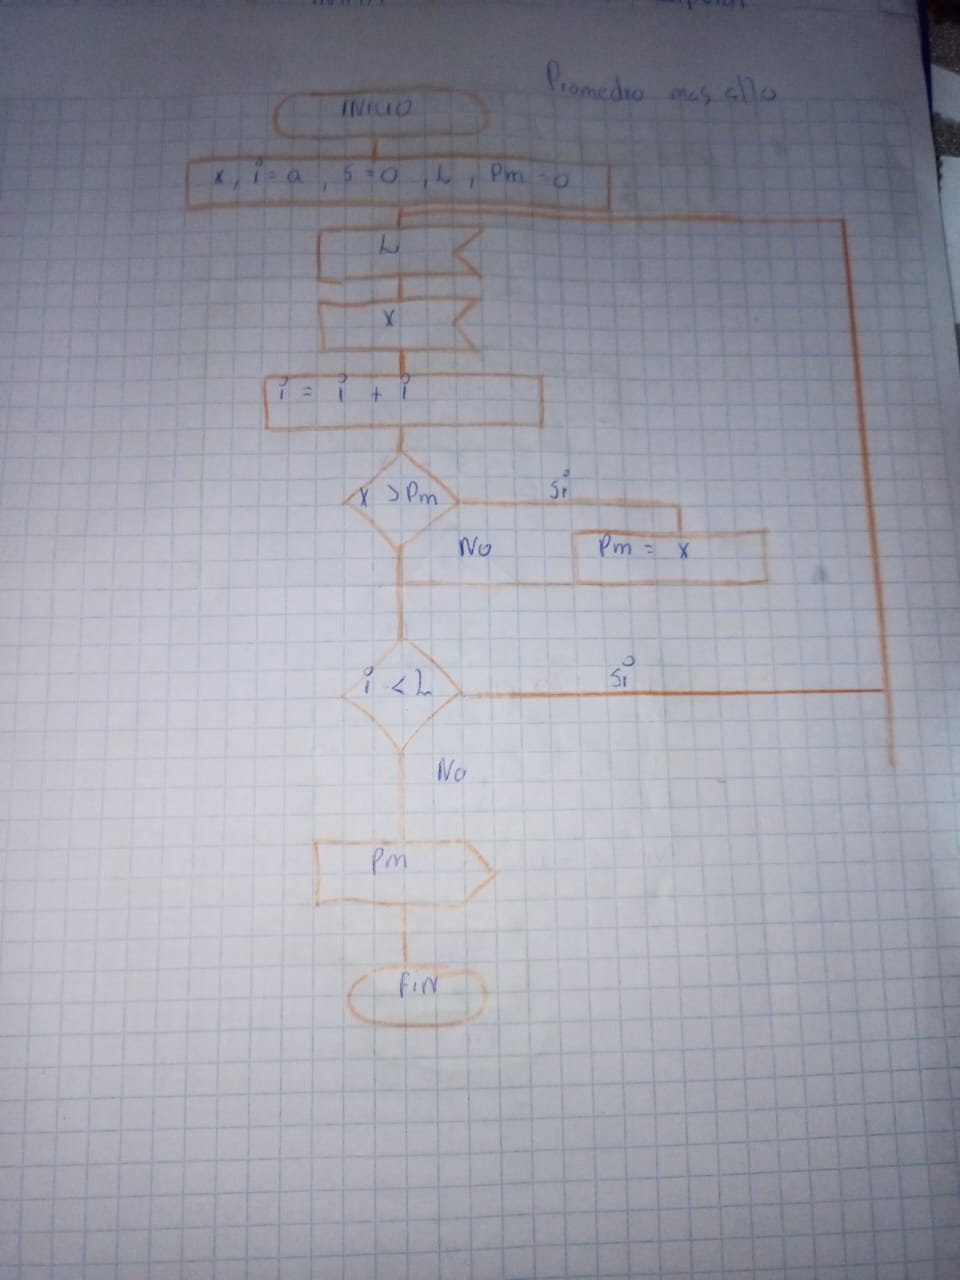 Promedio mas alto
INICIO
x, i=a, s=0, L, Pm=0
L
x
i = i + i
x >Pm
Si
No
Pm = x
i < L
Si
No
Pm
FIN